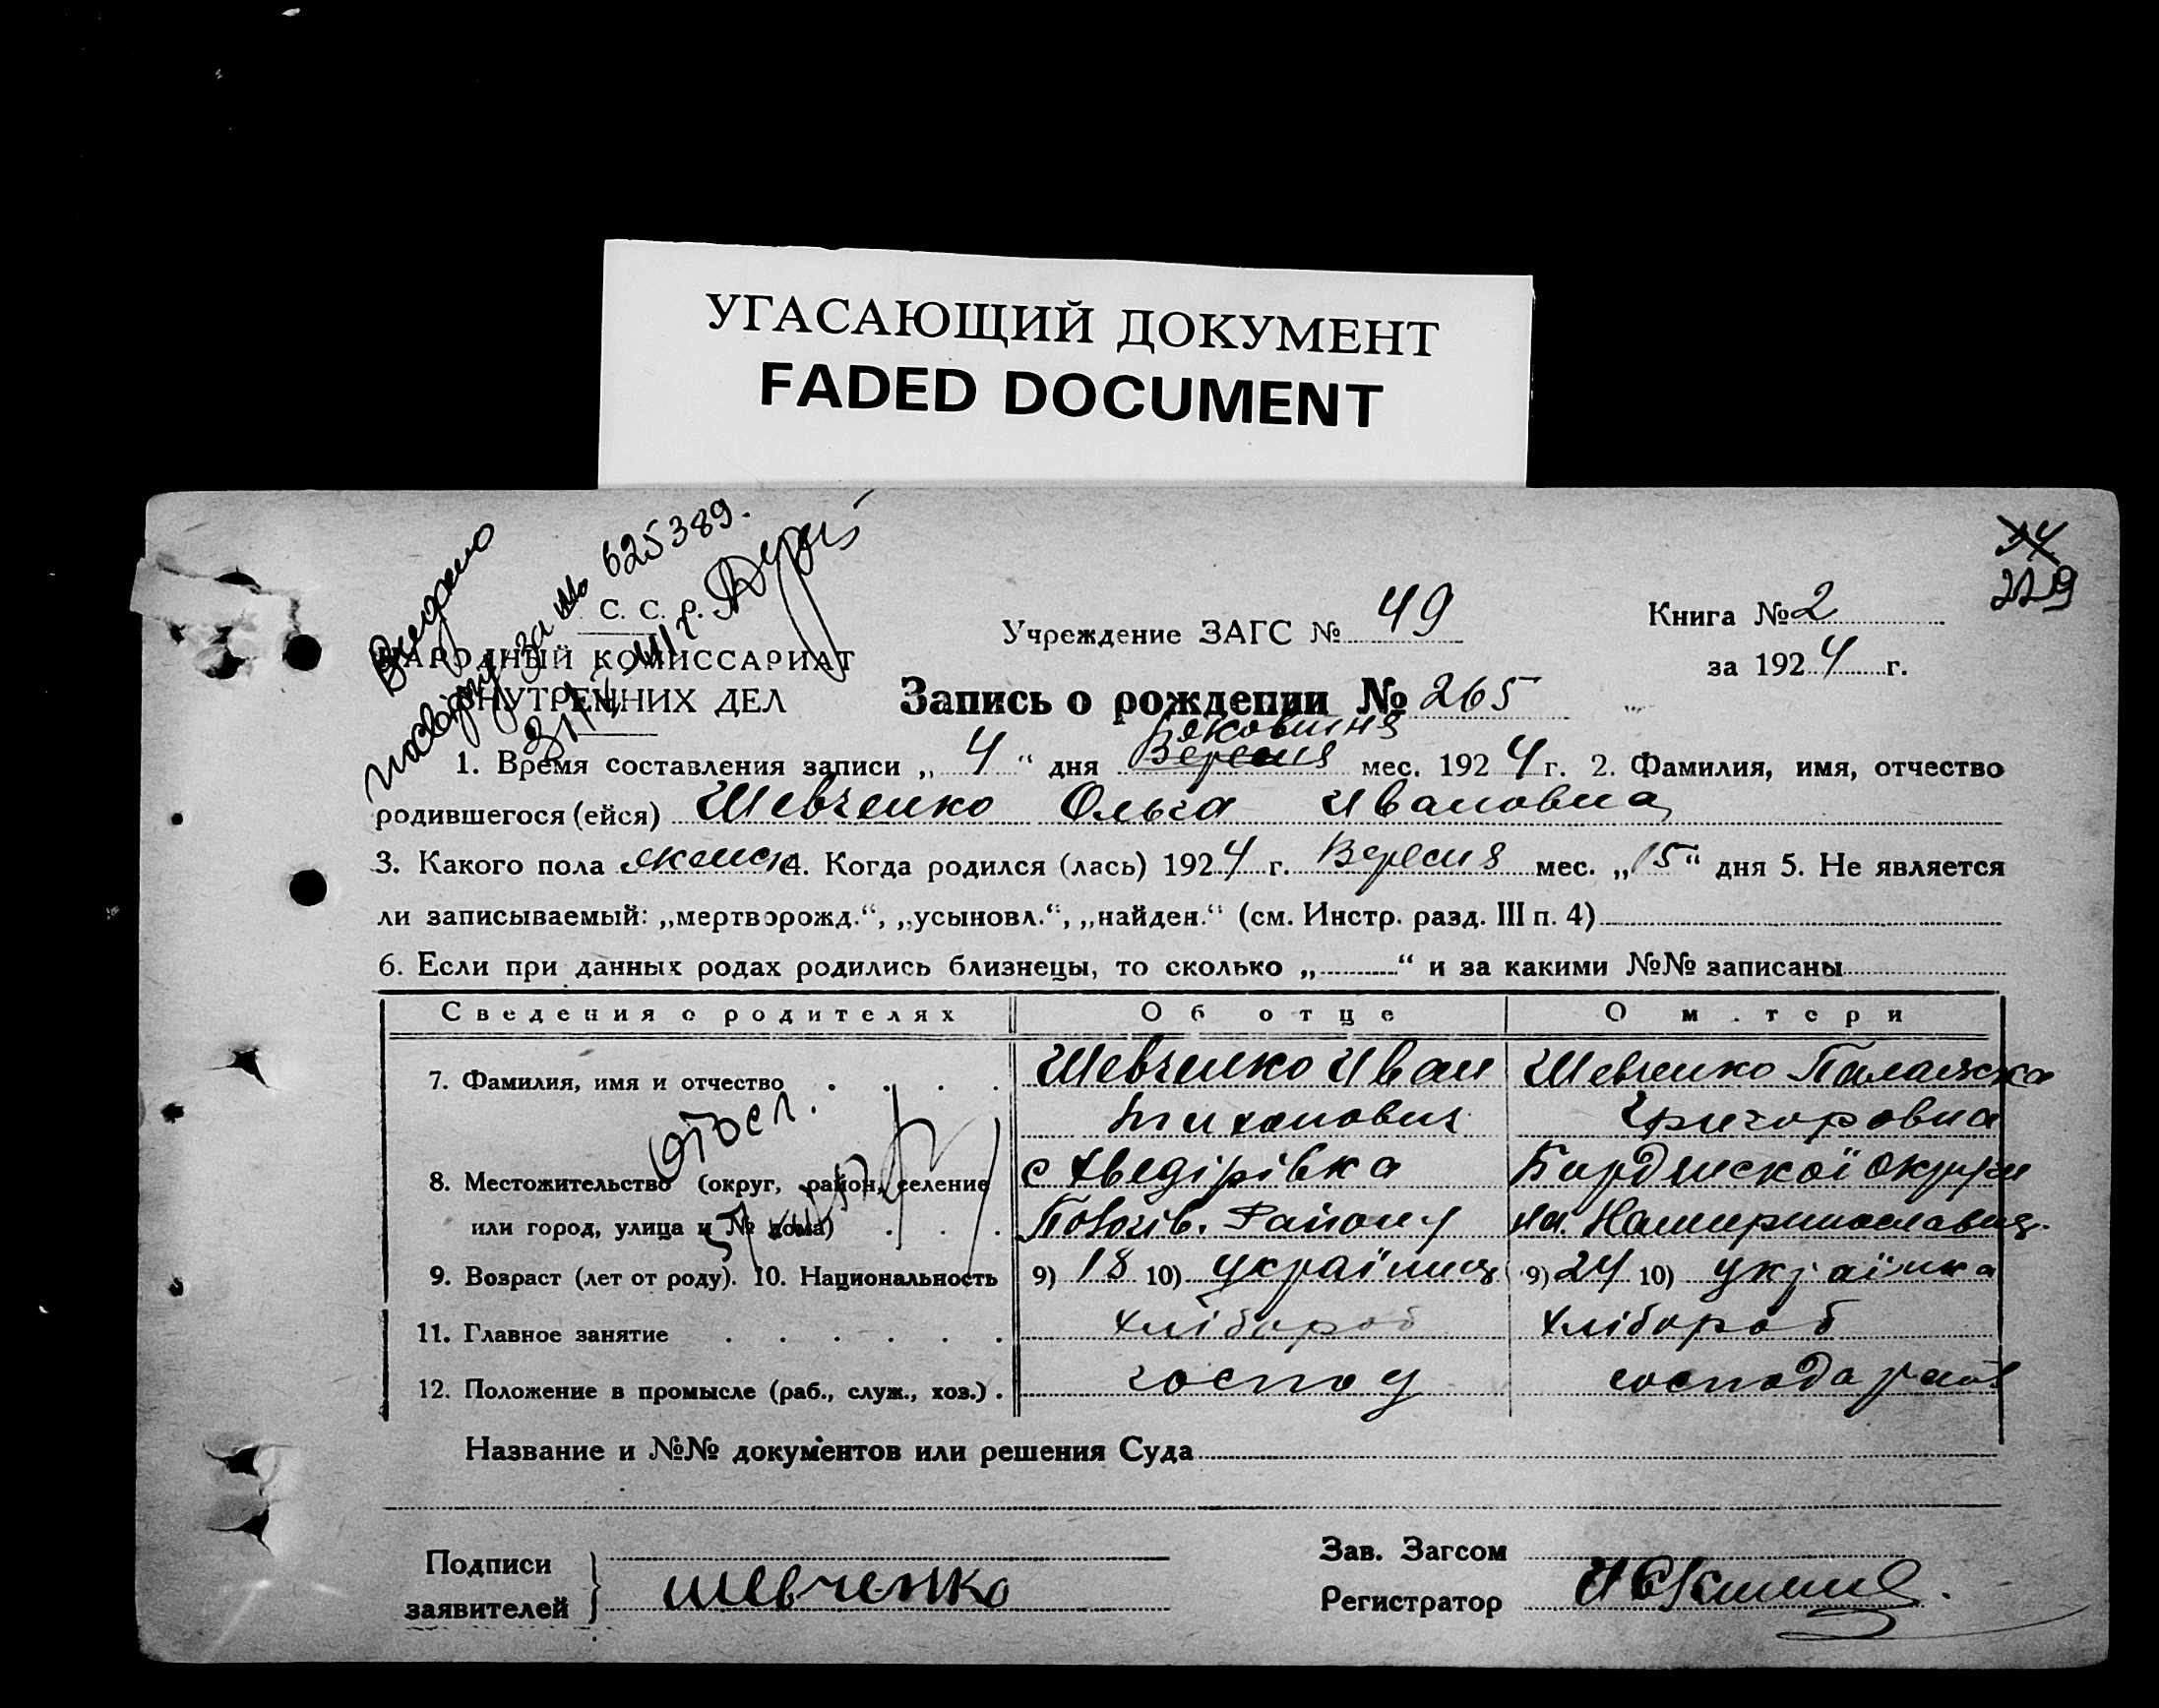 УГАСАЮЩИЙ ДОКУМЕНТ
FADED DOCUMENT
34
229
Видано
625389.
С. С. Р.
НАРОДНЫЙ КОМИССАРИАТ
ВНУТРЕННИХ ДЕЛ
Учреждение ЗАГС № 49
Книга № 2
за 1924 г.
Запись о рождении № 265
Жковтня
1. Время составления записи „ 4 “ дня Вересня мес. 1924 г. 2. Фамилия, имя, отчество
родившегося (ейся) Шевченко Ольга Ивановна
3. Какого пола женск 4. Когда родился (лась) 1924 г. Вересня мес. „15“ дня 5. Не является
ли записываемый: „мертворожд.“, „усыновл.“, „найден.“ (см. Инстр. разд. III п. 4)
6. Если при данных родах родились близнецы, то сколько „ “ и за какими №№ записаны
Сведения о родителях Об отце О м.тери
7. Фамилия, имя и отчество Шевченко Иван Шевченко Палажка
Тихонович Григоровна
8. Местожительство (округ, район, селение с Хведірівка Бердянскоі Округи
или город, улица и № дома) Району
9. Возраст (лет от роду). 10. Национальность 9) 18 10) україниця 9) 24 10) українка
11. Главное занятие хлібороб хлібороб
12. Положение в промысле (раб., служ., хоз.) господ
Название и №№ документов или решения Суда
Подписи
заявителей } шевченко
Зав. Загсом
Регистратор